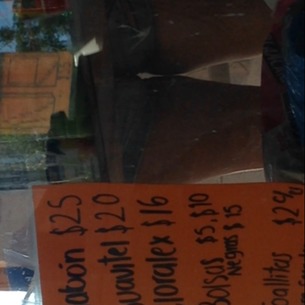 abón $25
uavitel $20
loralex $16
olsas $5, $10
Negras $15
oallitas $2